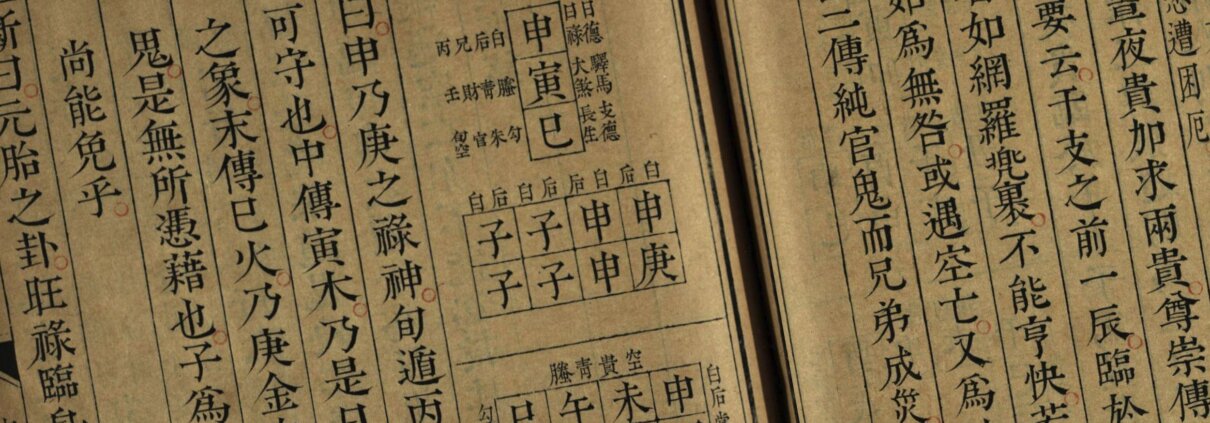 遭困厄
晝夜貴加求兩貴尊崇傳
要云干支之前一辰臨於
如網羅兠裹不能亨快若
如為無咎或遇空亡又為
三傳純官鬼而兄弟成災
日德
日祿
申
白后兄丙
驛馬
天煞
寅
螣青財壬
支德
長生
巳
勾朱官
旬空
白后白后后白后白
申申子子
庚申子子
空貴青螣
白后
申未午
勾
曰申乃庚之祿神旬遁丙
可守也中傳寅木乃是日
之象末傳巳火乃庚金
鬼是無所憑藉也子為
尚能免乎
斷曰元胎之卦旺祿臨身